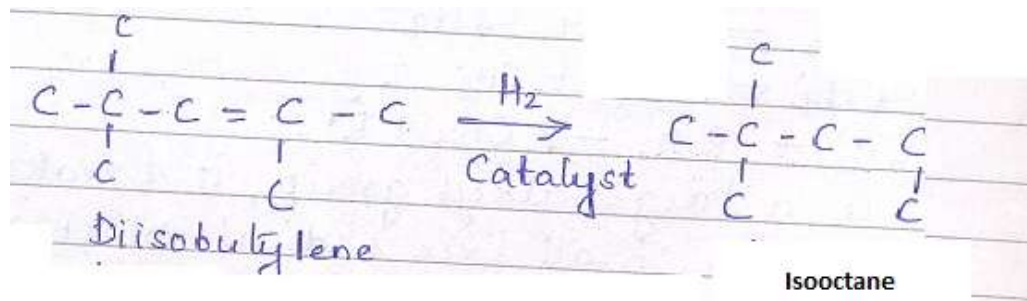 C                                        C
|                                        |
C - C - C = C - C   H2 →   C - C - C - C
|       |           Catalyst       |       |
C       C                          C       C
Diisobutylene
Isooctane